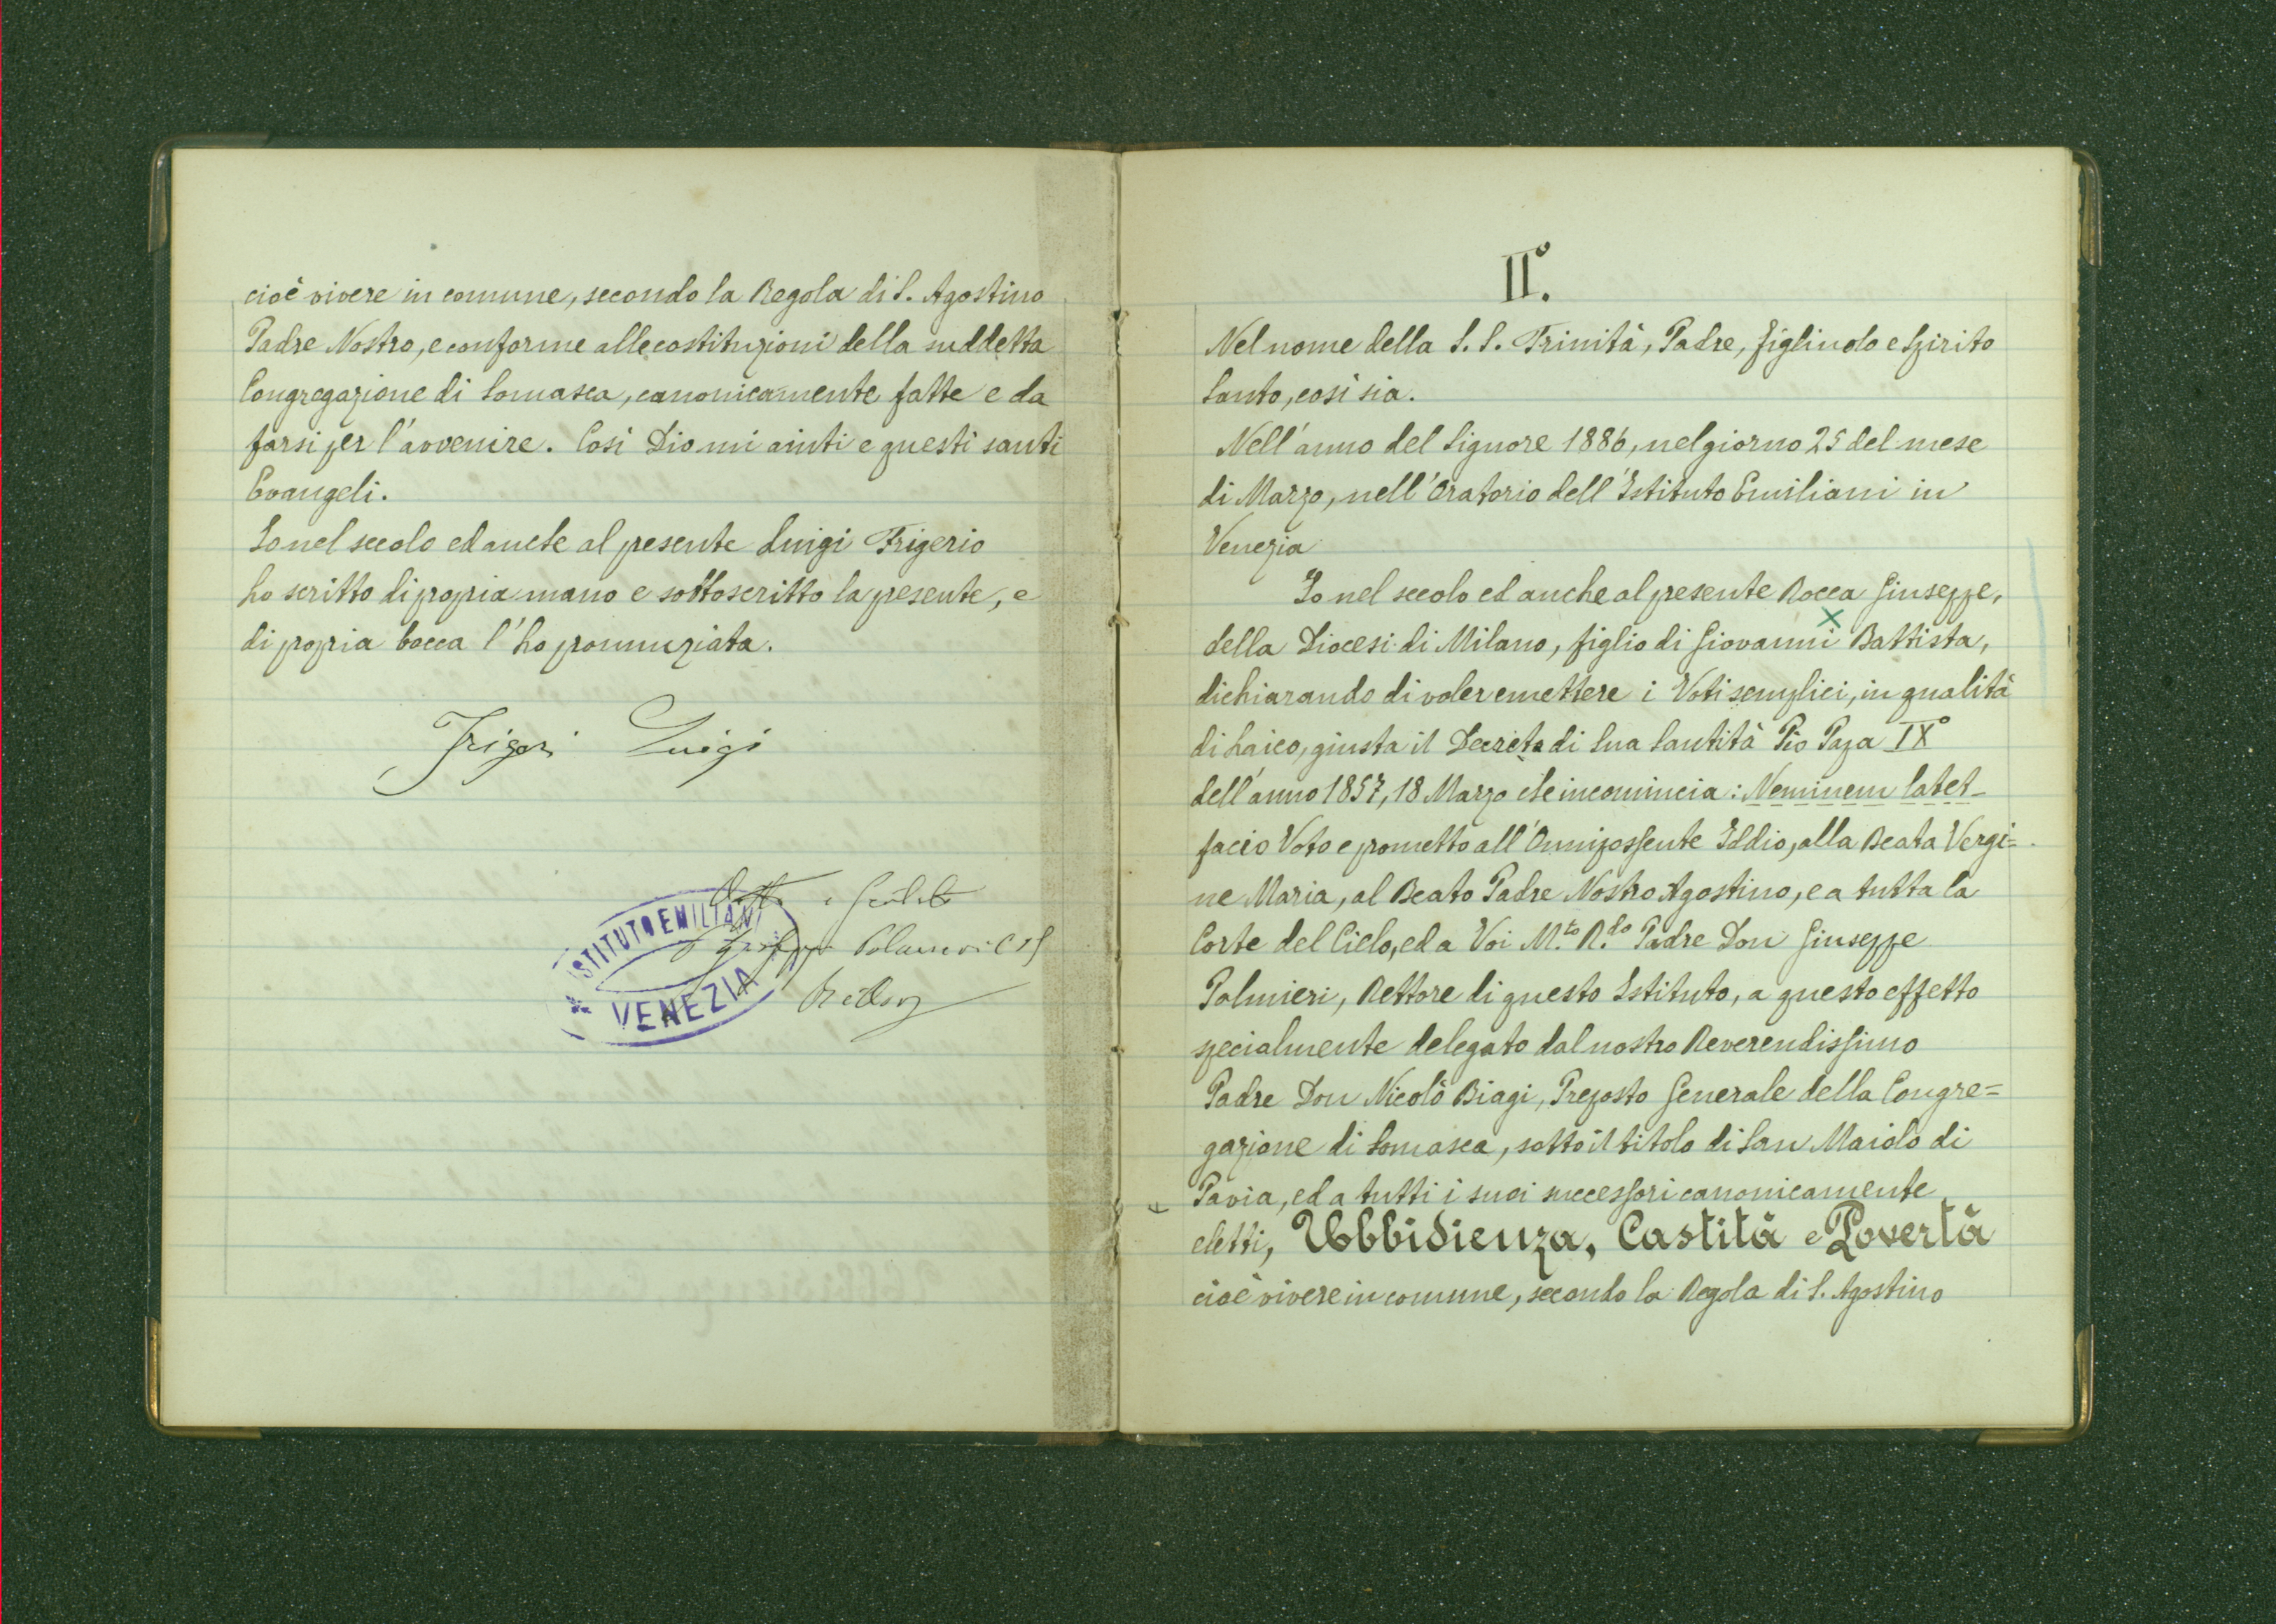 cioè vivere in comune, secondo la Regola di S. Agostino
Padre Nostro, e conforme alle costituzioni della suddetta
Congregazione di Somasca, canonicamente fatte e da
farsi per l'avvenire. Così Dio mi aiuti e questi santi
Evangeli.
Io nel secolo ed anche al presente Luigi Frigerio
ho scritto di propria mano e sottoscritto la presente, e
di propria bocca l'ho pronunziata.
Frigeri Luigi
ISTITUTO EMILIANI
VENEZIA
II°.
Nel nome della S. S. Trinità, Padre, figliuolo e Spirito
Santo, così sia.
Nell'anno del Signore 1886, nel giorno 25 del mese
di Marzo, nell'Oratorio dell'Istituto Emiliani in
Venezia
Io nel secolo ed anche al presente Rocca Giuseppe,
della Diocesi di Milano, figlio di Giovanni Battista,
dichiarando di voler emettere i Voti semplici, in qualità
di Laico, giusta il Decreto di Sua Santità Pio Papa IX°
dell'anno 1857, 18 Marzo che incomincia: Neminem latet_
facio Voto e prometto all'Onnipossente Iddio, alla Beata Vergi=
ne Maria, al Beato Padre Nostro Agostino, e a tutta la
Corte del Cielo, ed a Voi M.to R.do Padre Don Giuseppe
Palmieri, Rettore di questo Istituto, a questo effetto
specialmente delegato dal nostro Reverendissimo
Padre Don Nicolò Biagi, Preposto Generale della Congre=
gazione di Somasca, sotto il titolo di San Maiolo di
Pavia, ed a tutti i suoi successori canonicamente
eletti, Ubbidienza, Castità e Povertà
cioè vivere in comune, secondo la Regola di S. Agostino